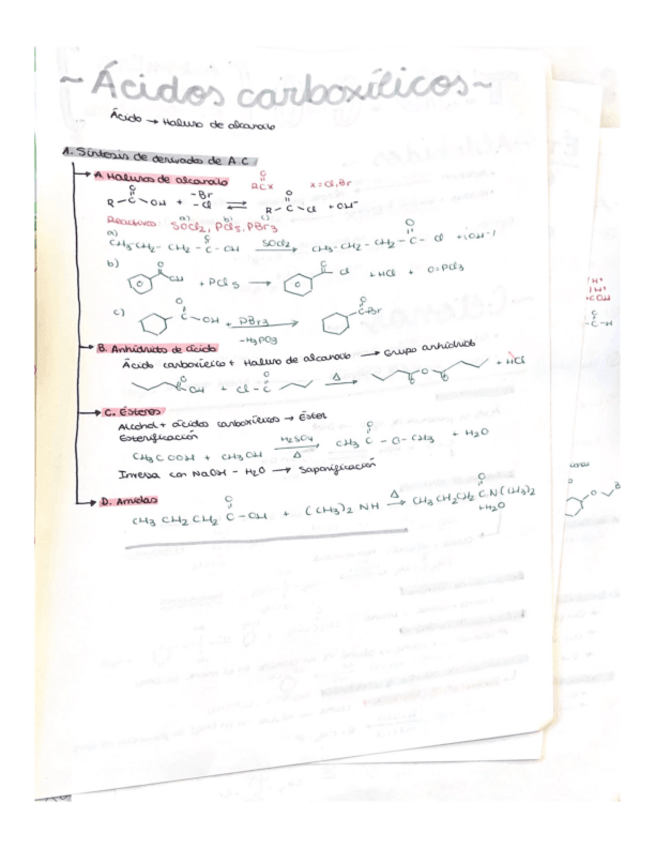 ~Ácidos carboxílicos~
Ácido → Haluro de alcanoilo
1. Síntesis de derivados de A.C
A. Haluros de alcanoilo
O
RCX
X=Cl,Br
R-C-OH + -Br -Cl ⇌ R-C-Cl + OH⁻
Reactivos: SOCl2, PCl5, PBr3
a) b) c)
a)
CH3-CH2-CH2-C-OH SOCl2 → CH3-CH2-CH2-C-Cl
b)
OH + PCl5 → Cl + HCl + O=PCl3
c)
C-OH + PBr3 → C-Br
-H3PO3
B. Anhídrido de ácido
Ácido carboxílico + Haluro de alcanoilo → Grupo anhídrido
OH + Cl-C Δ → O O O + HCl
C. Ésteres
Alcohol + ácidos carboxílicos → Éster
Esterificación
CH3COOH + CH3OH H2SO4 → Δ CH3C-O-CH3 + H2O
Inversa con NaOH - H2O → Saponificación
D. Amidas
CH3CH2CH2C-OH + (CH3)2NH Δ → CH3CH2CH2CN(CH3)2
+H2O